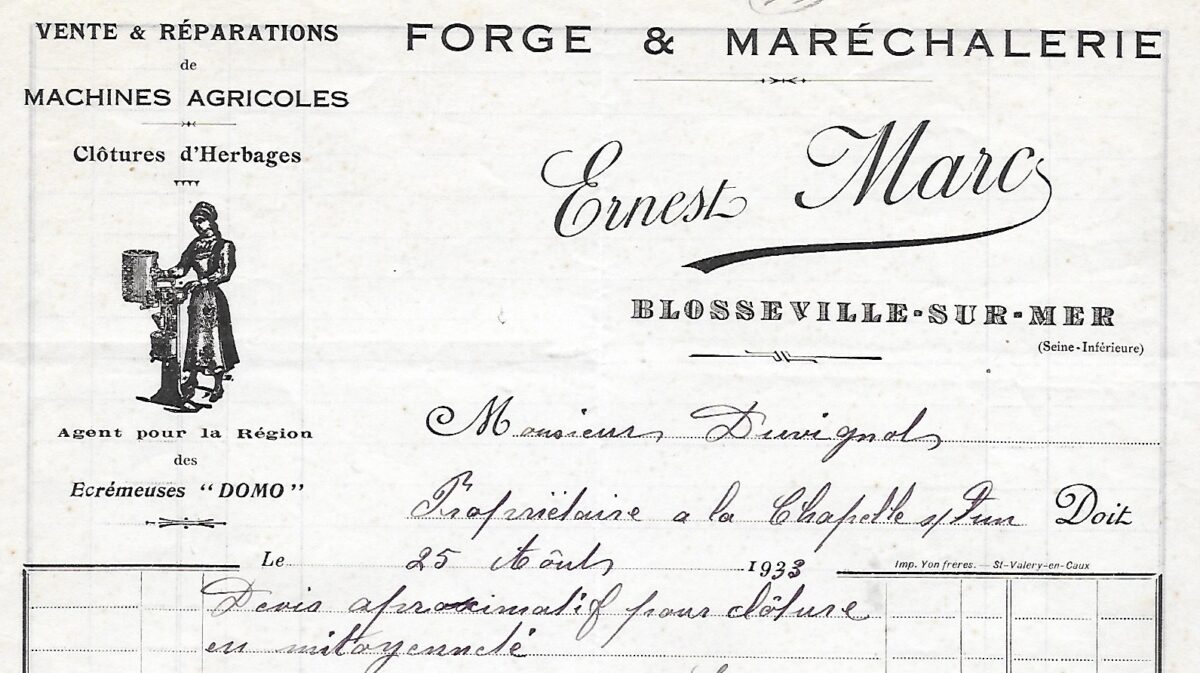 VENTE & RÉPARATIONS
de
MACHINES AGRICOLES
Clôtures d'Herbages
Agent pour la Région
des
Ecrémeuses "DOMO"
FORGE & MARÉCHALERIE
Ernest Marc
BLOSSEVILLE-SUR-MER
(Seine-Inférieure)
Monsieur Duvignol
Propriètaire a la Chapelle s/ Dun Doit
Le 25 Aôut 1933
Imp. Yon freres. — St-Valery-en-Caux
Devis aproximatif pour clôture
en mitoyenneté